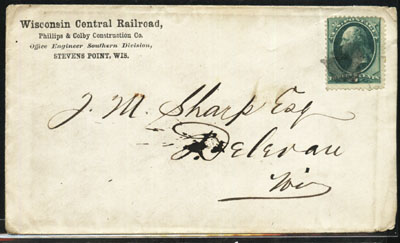 Wisconsin Central Railroad,
Phillips & Colby Construction Co.
Office Engineer Southern Division,
STEVENS POINT, WIS.
J. M. Sharp Esq
Delevan
Wis